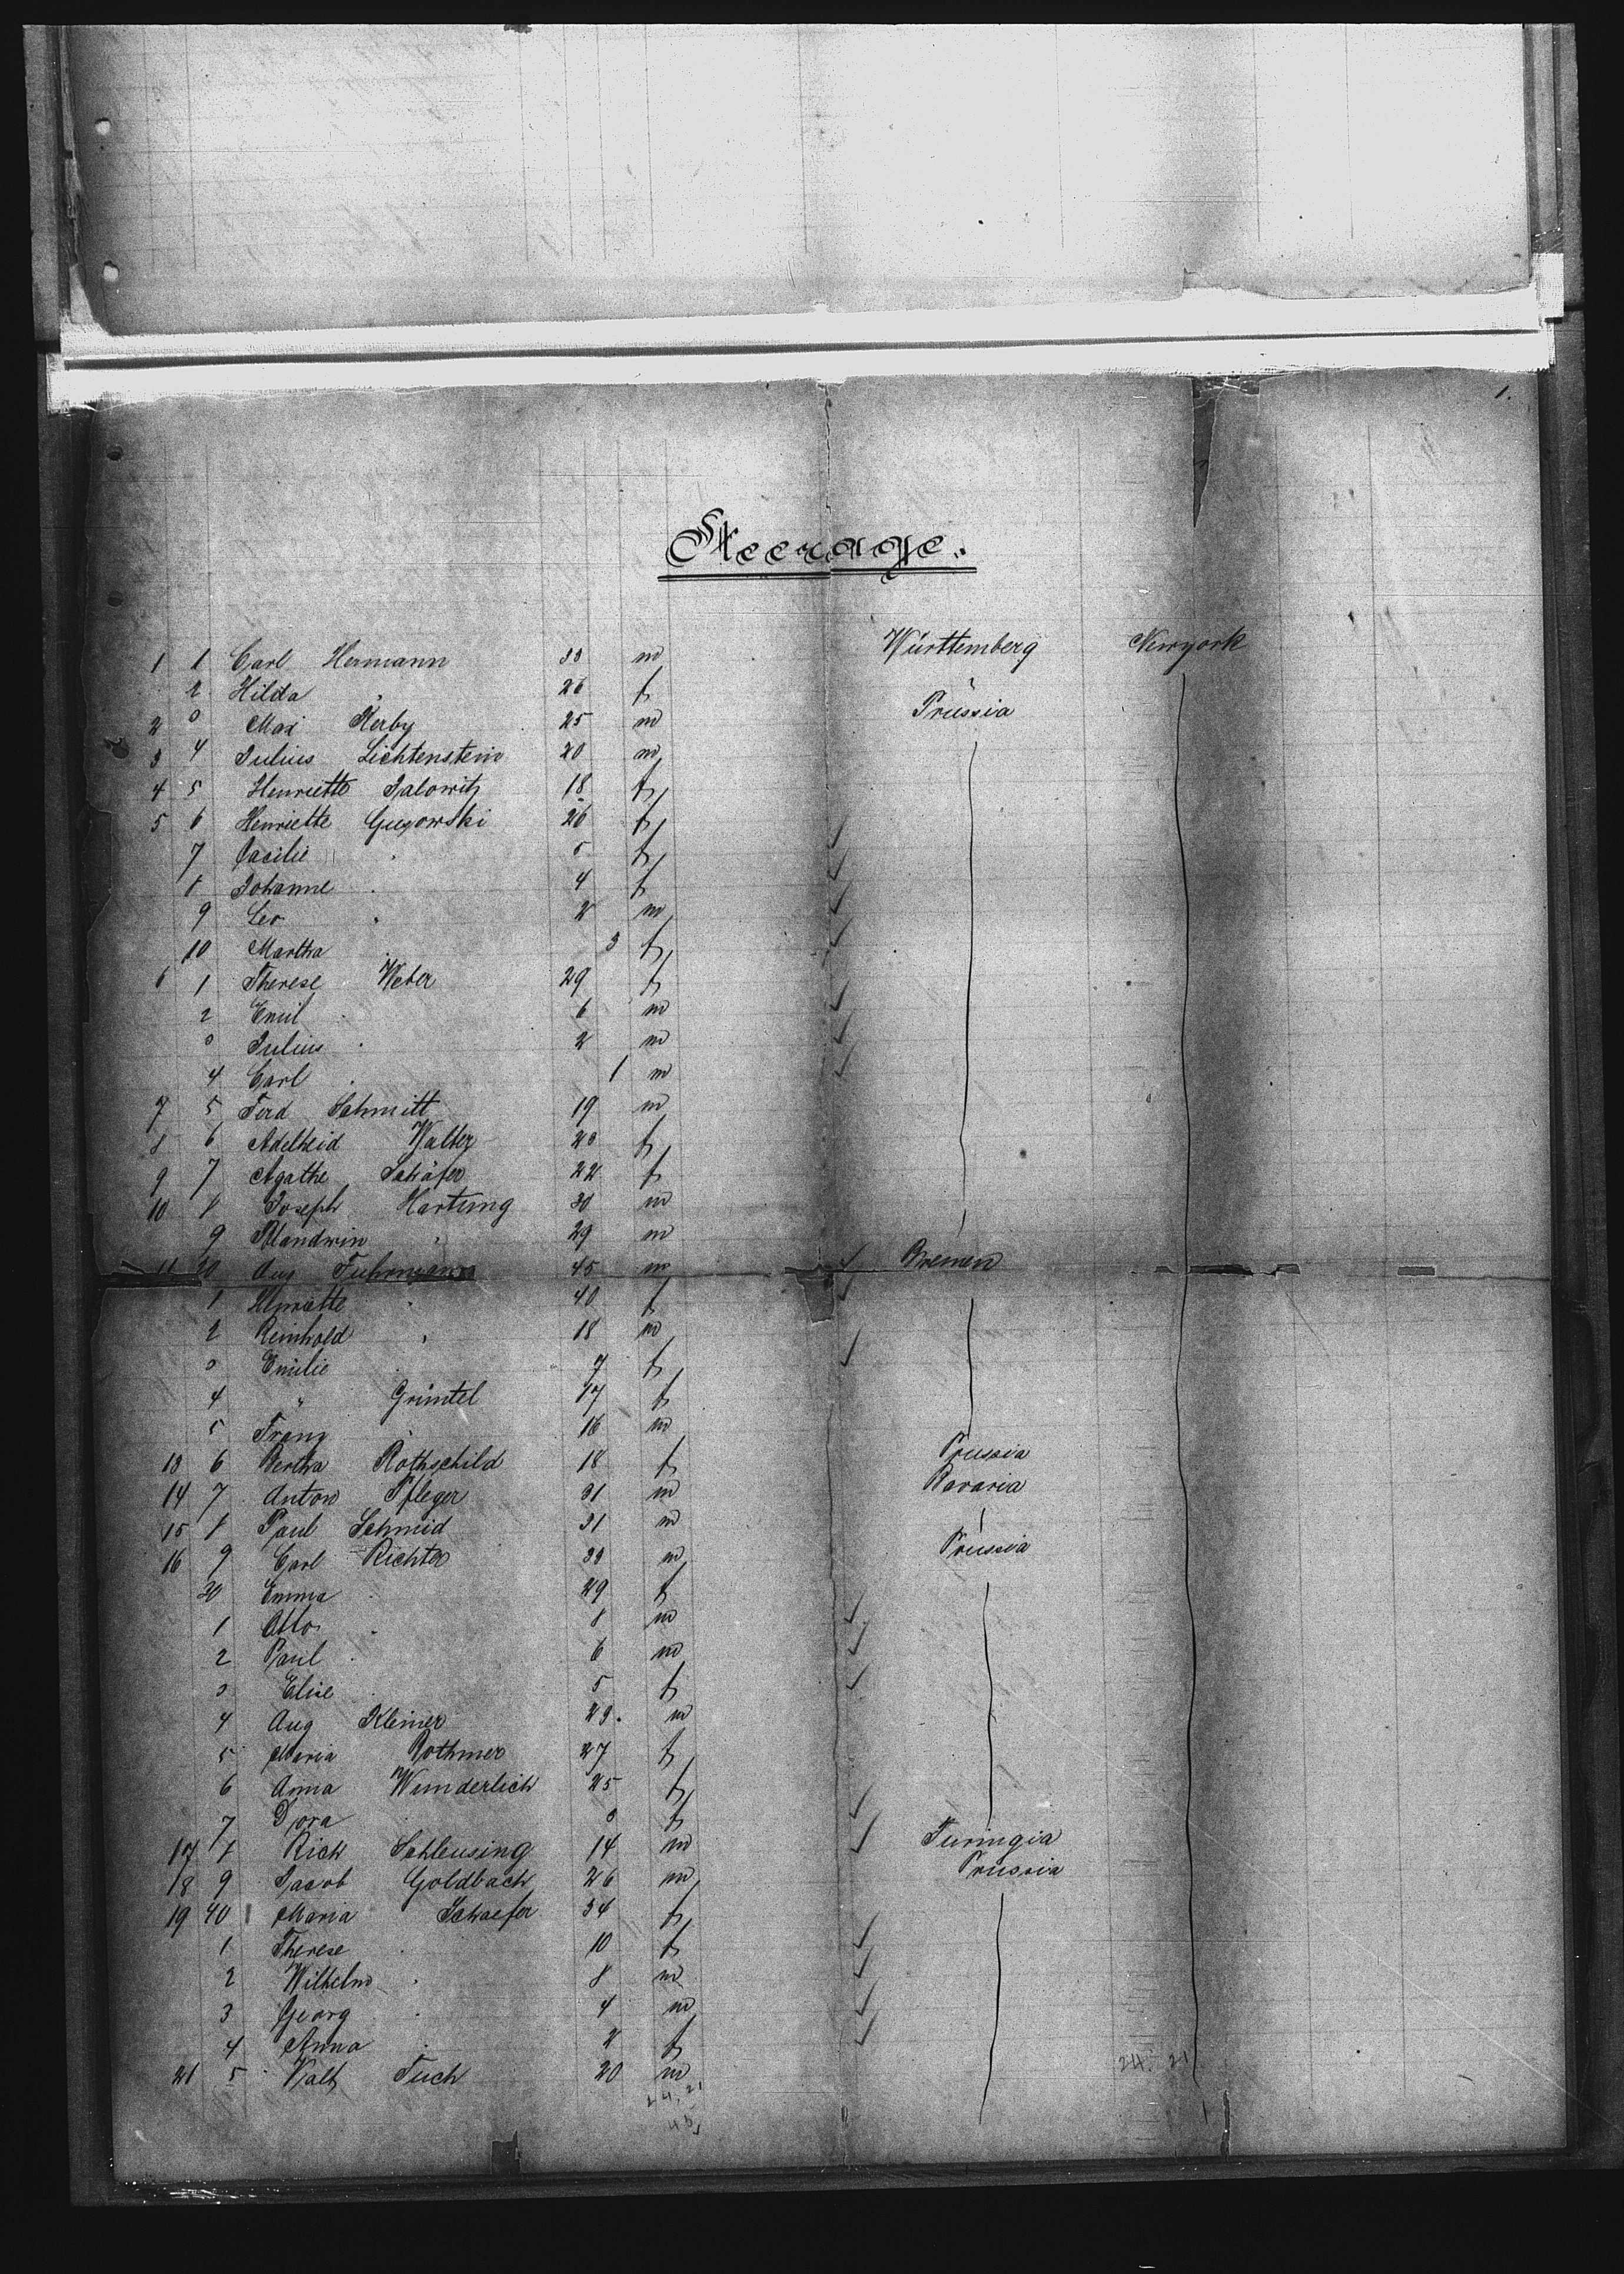 1.
Steerage.
1 1 Carl Hermann 33 m Württemberg Newyork
2 Hilda " 26 f "
2 3 Max Kerby 25 m Prussia
3 4 Julius Lichtenstein 20 m
4 5 Henriette Jalowitz 18 f
5 6 Henriette Guzowski 26 f
7 Cacilie " 5 f ✓
8 Johanne " 4 f ✓
9 Leo " 2 m ✓
10 Martha 3 f ✓
6 1 Therese Weber 29 f
2 Emil " 6 m ✓
3 Julius " 2 m ✓
4 Carl " 1 m ✓
7 5 Ferd Schmitt 19 m
8 6 Adelheid Walter 23 f
9 7 Agathe Schäfer 22 f
10 8 Joseph Hartung 30 m
9 " 29 m
11 20 Aug Fuhrmann 45 m ✓ Bremen
1 Henriette " 40 f ✓
2 Reinhold " 18 m
3 Emilie " 7 f ✓
4 " Grimtel 17 f
5 Franz " 16 m
13 6 Bertha Rothschild 18 f Prussia
14 7 Anton Pfleger 31 m Bavaria
15 8 Paul Schmid 31 m
16 9 Carl Richter 33 m Prussia
30 Emma " 29 f
1 Otto " 8 m ✓
2 Paul " 6 m ✓
3 Elise " 5 f ✓
4 Aug Kleiner 29 m
5 Maria Rothmer 27 f
6 Anna Wunderlich 25 f
7 Dora " 3 f ✓
17 8 Rich Schleusing 14 m ✓ Turingia
18 9 Jacob Goldbach 26 m Prussia
19 40 Maria Schaefer 34 f
1 Therese " 10 f ✓
2 Wilhelm " 8 m ✓
3 Georg " 4 m ✓
4 Anna " 2 f ✓
21 5 Walt Tuch 20 m
24. 21
24. 21
45